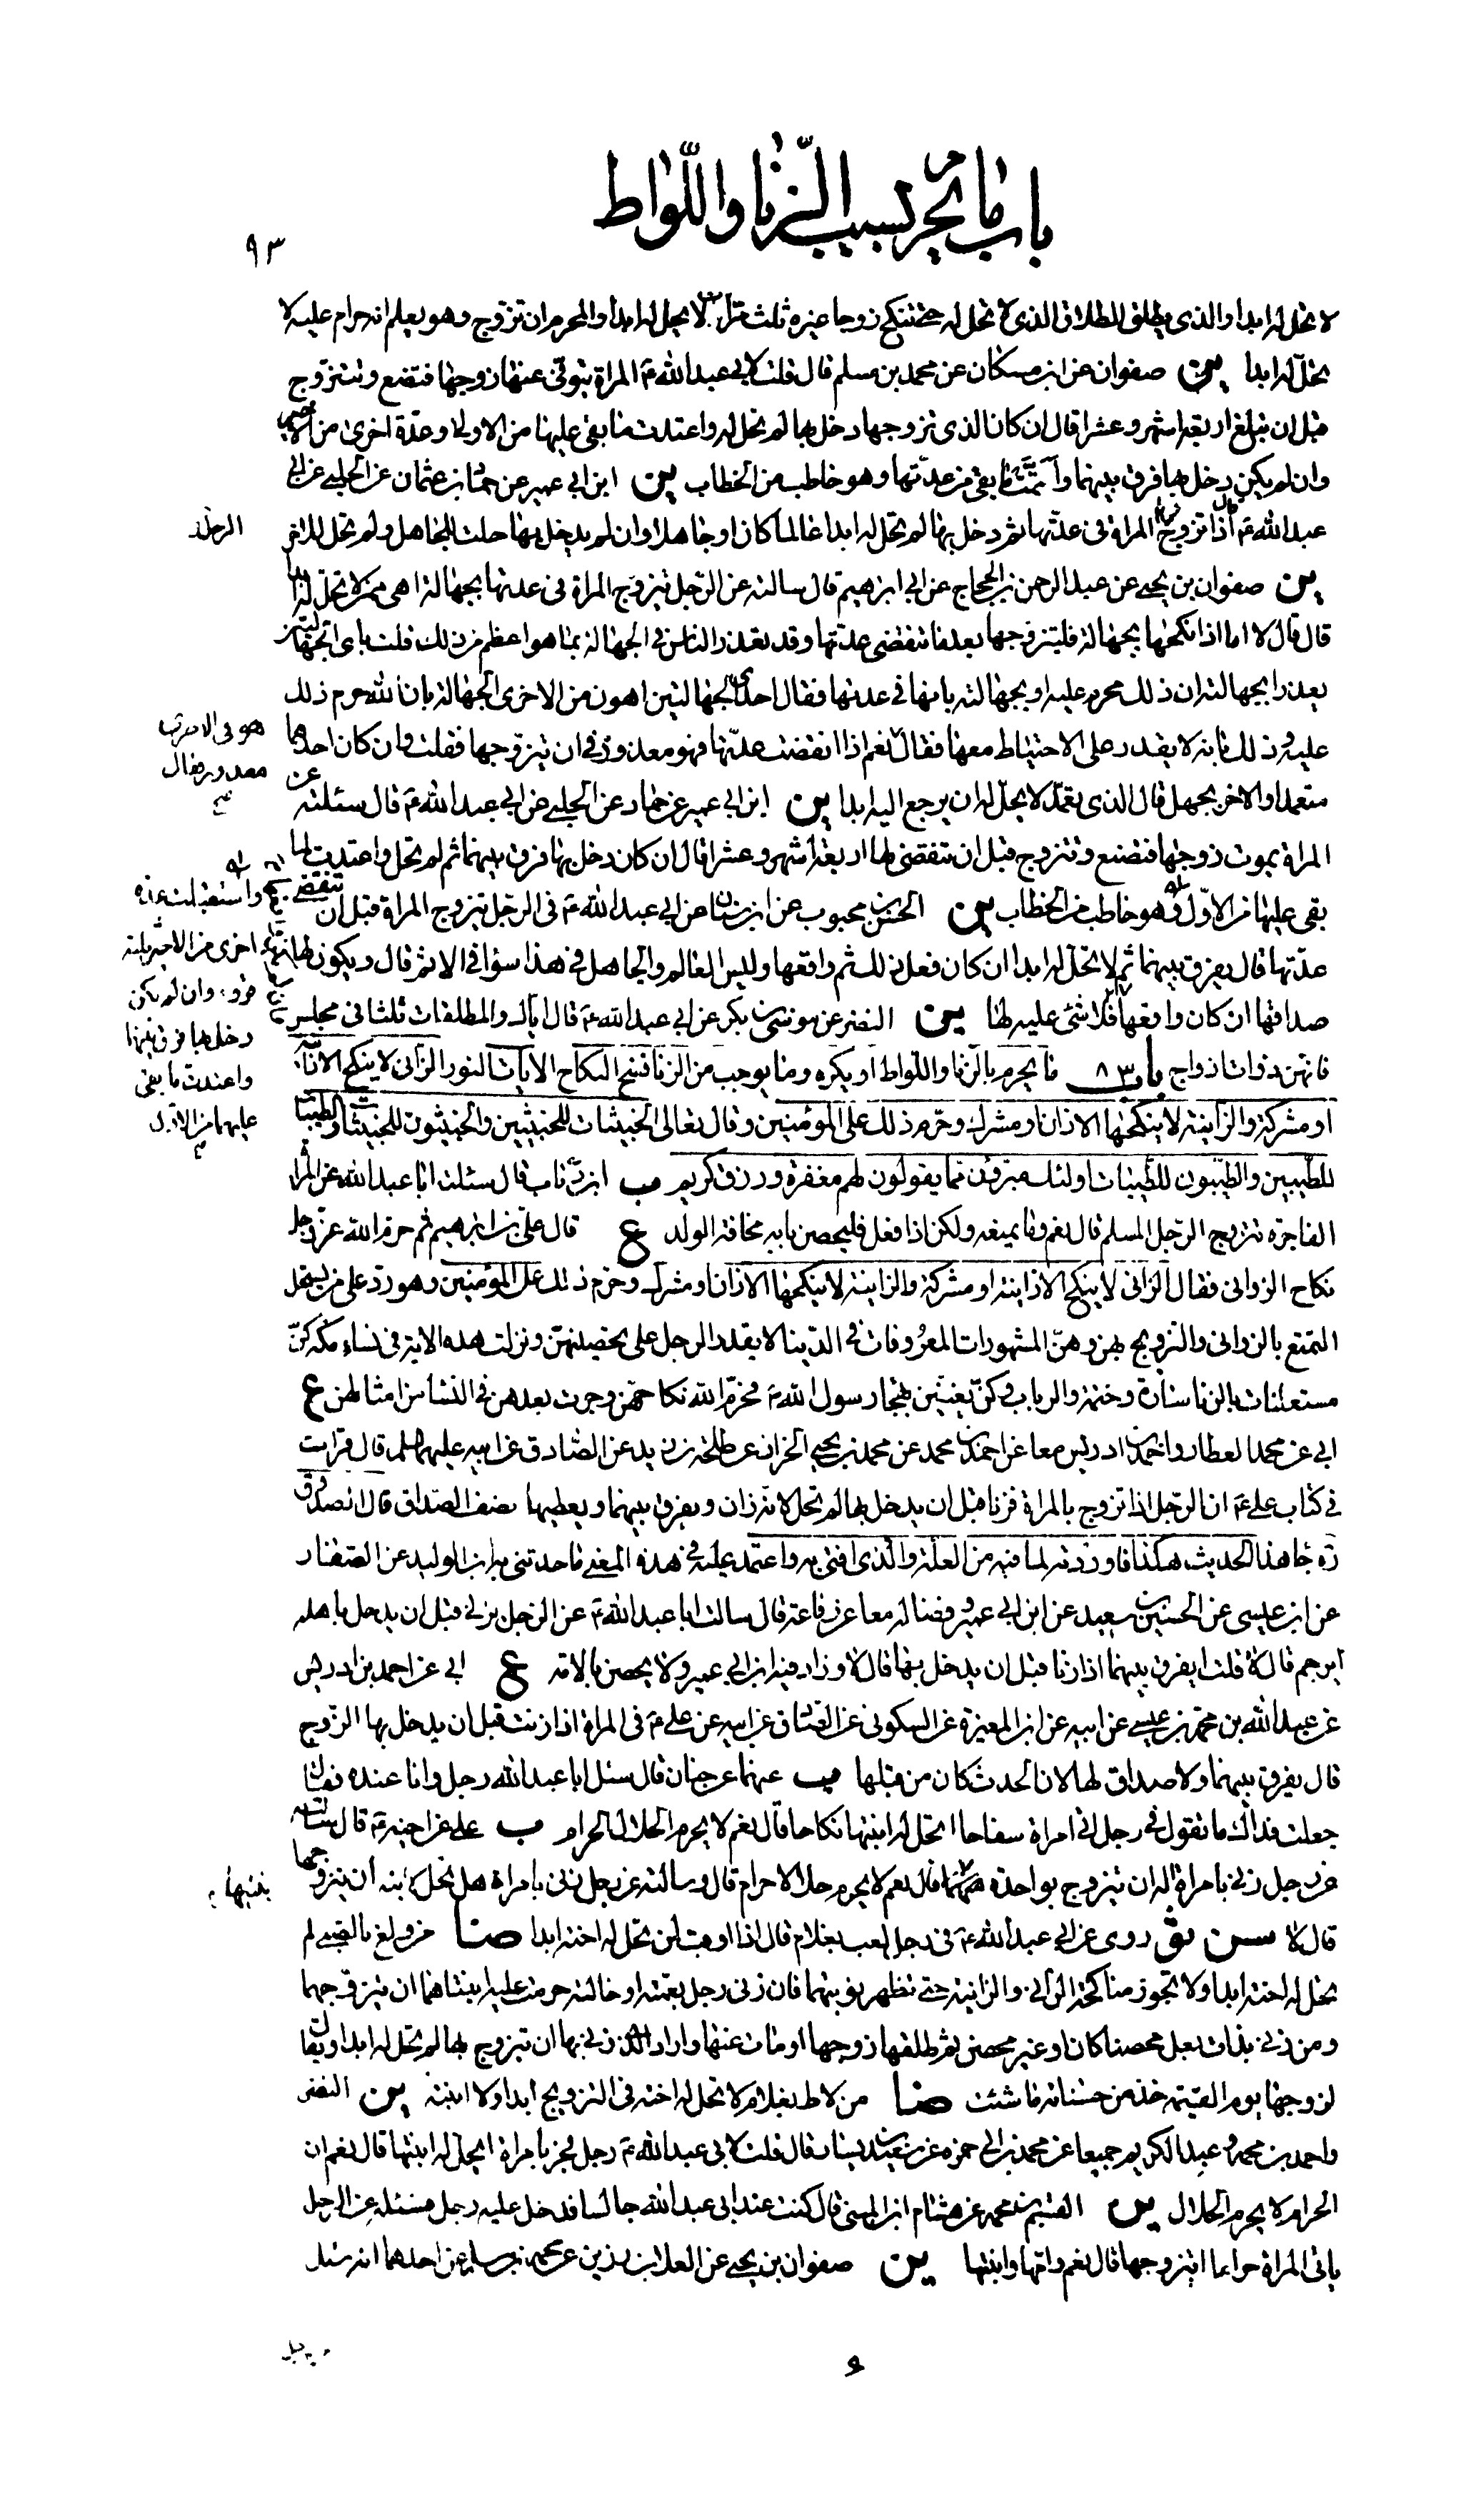 باب ما يحرم بسبب الزنا واللواط
٩٣
لا تحل له ابدا والذى يطلق الطلاق الذى لا تحل له حتى تنكح زوجا غيره ثلث مرات لا يحل له ابدا والمحرم ان تزوج وهو يعلم انه حرام عليه لا
تحل له ابدا ين صفوان عن ابن مسكان عن محمد بن مسلم قال قلت لابى عبدالله ع المراة يتوفى عنها زوجها فتضع وتتزوج
قبل ان تبلغ اربعة اشهر وعشرا قال ان كان الذى تزوجها دخل بها لم تحل له واعتدت ما بقى عليها من الاولى وعدة اخرى من الاخير
وان لم يكن دخل بها فرق بينهما واتمت ما بقى من عدتها وهو خاطب من الخطاب ين ابن ابى عمير عن حماد بن عثمان عن الحلبى عن ابى
عبدالله ع قال اذا تزوج الرجل المراة فى عدتها ثم دخل بها لم تحل له ابدا عالما كان او جاهلا وان لم يدخل بها حلت للجاهل ولم تحل للاخر
ين صفوان بن يحيى عن عبد الرحمن بن الحجاج عن ابى ابرهيم قال سالته عن الرجل تزوج المراة فى عدتها بجهالة اهى ممن لا تحل له ابدا
قال قال لا اما اذا نكحها بجهالة فليتزوجها بعد ما تنقضى عدتها وقد يعذر الناس فى الجهالة بما هو اعظم من ذلك قلت باى الجهالتين
يعذر ابجهالته ان ذلك محرم عليه او بجهالته بانها فى عدتها فقال احدى الجهالتين اهون من الاخرى الجهالة بان الله حرم ذلك
عليه وذلك بانه لا يقدر على الاحتياط معها فقال نعم اذا انقضت عدتها فهو معذور فى ان يتزوجها فقلت وان كان احدهما
متعمدا والاخر بجهل قال الذى تعمد لا يحل له ان يرجع اليه ابدا ين ابن ابى عمير عن حماد عن الحلبى عن ابى عبدالله ع قال سئلته عن
المراة يموت زوجها فتضع وتتزوج قبل ان تنقضى لها اربعة اشهر وعشرا قال ان كان دخل بها فرق بينهما ثم لم تحل واعتدت لما
بقى عليها من الاول وهو خاطب من الخطاب ين الحسن بن محبوب عن ابن سنان عن ابى عبدالله ع فى الرجل يتزوج المراة قبل ان تنقضى
عدتها قال يفرق بينهما ثم لا تحل له ابدا ان كان فعل ذلك ثم واقعها وليس العالم والجاهل فى هذا سواء فى الاثم قال ويكون لها
صداقها ان كان واقعها فلا شئ عليه لها ين النضر عن موسى بن بكر عن ابى عبدالله ع قال اياك والمطلقات ثلثا فى مجلس
فانهن ذوات ازواج باب ٨٣ ما يحرم بالزنا واللواط او يكره وما يوجب من الزنا فسخ النكاح الايات النور الزانى لا ينكح الا زانية
او مشركة والزانية لا ينكحها الا زان او مشرك وحرم ذلك على المؤمنين وقال تعالى الخبيثات للخبيثين والخبيثون للخبيثات والطيبات
للطيبين والطيبون للطيبات اولئك مبرؤن مما يقولون لهم مغفرة ورزق كريم ب ابن رئاب قال سئلت ابا عبدالله عن المراة
الفاجرة تتزوج الرجل المسلم قال نعم وما يمنعه ولكن اذا فعل فليحصن بابه مخافة الولد ع قال على بن ابرهيم ثم حرم الله عز وجل
نكاح الزوانى فقال الزانى لا ينكح الا زانية او مشركة والزانية لا ينكحها الا زان او مشرك وحرم ذلك على المؤمنين وهو رد على من يستحل
التمتع بالزوانى والتزويج بهن وهن المشهورات المعروفات فى الدنيا لا يقدر الرجل على تحصينهن ونزلت هذه الاية فى نساء مكة كن
مستعلنات بالزنا سارة وحنتمة والرباب كن يغنين بهجاء رسول الله ص فحرم الله نكاحهن وجرت بعدهن فى النساء من امثالهن ع
ابى عن محمد العطار واحمد بن ادريس معا عن احمد بن محمد عن محمد بن يحيى الخزاز عن طلحة بن زيد عن الصادق عن ابيه عليهما السلم قال قرات
فى كتاب على ع ان الرجل اذا تزوج بالمراة فزنا قبل ان يدخل بها لم تحل لانه زان ويفرق بينهما ويعطيها نصف الصداق قال الصدوق
ره جاء هذا الحديث هكذا فاوردته لما فيه من العلة والذى افتى به واعتمد عليه فى هذه المعنى ما حدثنى به ابن الوليد عن الصفار
عن ابن عيسى عن الحسين بن سعيد عن ابن ابى عمير وفضالة معا عن رفاعة قال سالت ابا عبدالله ع عن الرجل يزنى قبل ان يدخل باهله
ايرجم قال لا قلت ايفرق بينهما اذا زنا قبل ان يدخل بها قال لا وزاد فيه ابن ابى عمير ولا يحصن بالامة ع ابى عن احمد بن ادريس
عن عبد الله بن محمد بن عيسى عن ابيه عن ابن المغيرة عن السكونى عن الصادق عن ابيه عن على ع فى المراة اذا زنت قبل ان يدخل بها الزوج
قال يفرق بينهما ولا صداق لها لان الحدث كان من قبلها ب عنهما عن حنان قال سئل ابا عبدالله رجل وانا عنده فقال
جعلت فداك ما تقول فى رجل اتى امراة سفاحا اتحل له ابنتها نكاحا قال نعم لا يحرم الحلال الحرام ب على عن اخيه ع قال سئلته
عن رجل زنى بامراتين اله ان يتزوج بواحدة منهما قال نعم لا يحرم حلالا حرام قال وسالته عن رجل زنى بامراة هل تحل لابنه ان يتزوجها
قال لا سن ق روى عن ابى عبدالله ع فى رجل لعب بغلام قال اذا اوقب لن تحل له اخته ابدا ضا من ولع بالصبى لم
تحل له اخته ابدا ولا تجوز مناكحة الزانى والزانية حتى تظهر توبتهما فان زنى رجل بعمته او خالته حرمت عليه ابنتاهما ان يتزوجهما
ومن زنى بذات بعل محصنا كان او غير محصن ثم طلقها زوجها او مات عنها واراد الذى زنى بها ان يتزوج بها لم تحل له ابدا ويقال
لزوجها يوم القيمة خذ من حسناته ما شئت ضا من لاط بغلام لا تحل له اخته فى التزويج ابدا ولا ابنته ين النضر
واحمد بن محمد وعبد الكريم جميعا عن محمد بن ابى حمزه عن سعيد بن يسار قال قلت لابى عبدالله ع رجل فجر بامراة ايحل له ابنتها قال نعم ان
الحرام لا يحرم الحلال ين القسم بن محمد عن هشام ابن المثنى قال كنت عند ابى عبدالله جالسا فدخل عليه رجل فسئله عن الرجل
ياتى المراة حراما ايتزوجها قال نعم وامها وابنتها ين صفوان بن يحيى عن العلا بن رزين عن محمد بن مسلم عن احدهما انه سئل
الرجل
معذور فقال
واستقبلت عدة
اخرى من الاخير ثلثة
قروء وان لم يكن
دخل بها فرق بينهما
واعتدت ما بقى
عليها من الاول